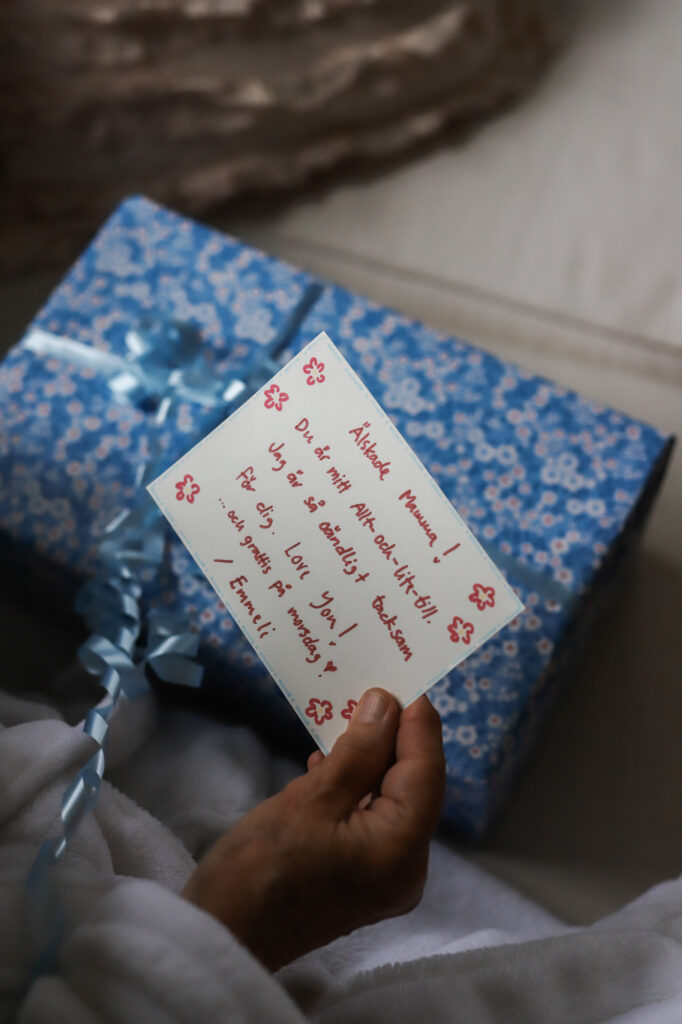 Älskade Mamma!
Du är mitt Allt-och-lite-till.
Jag är så oändligt tacksam
för dig. Love you! ♥
...och grattis på morsdag. ♥
/ Emmeli